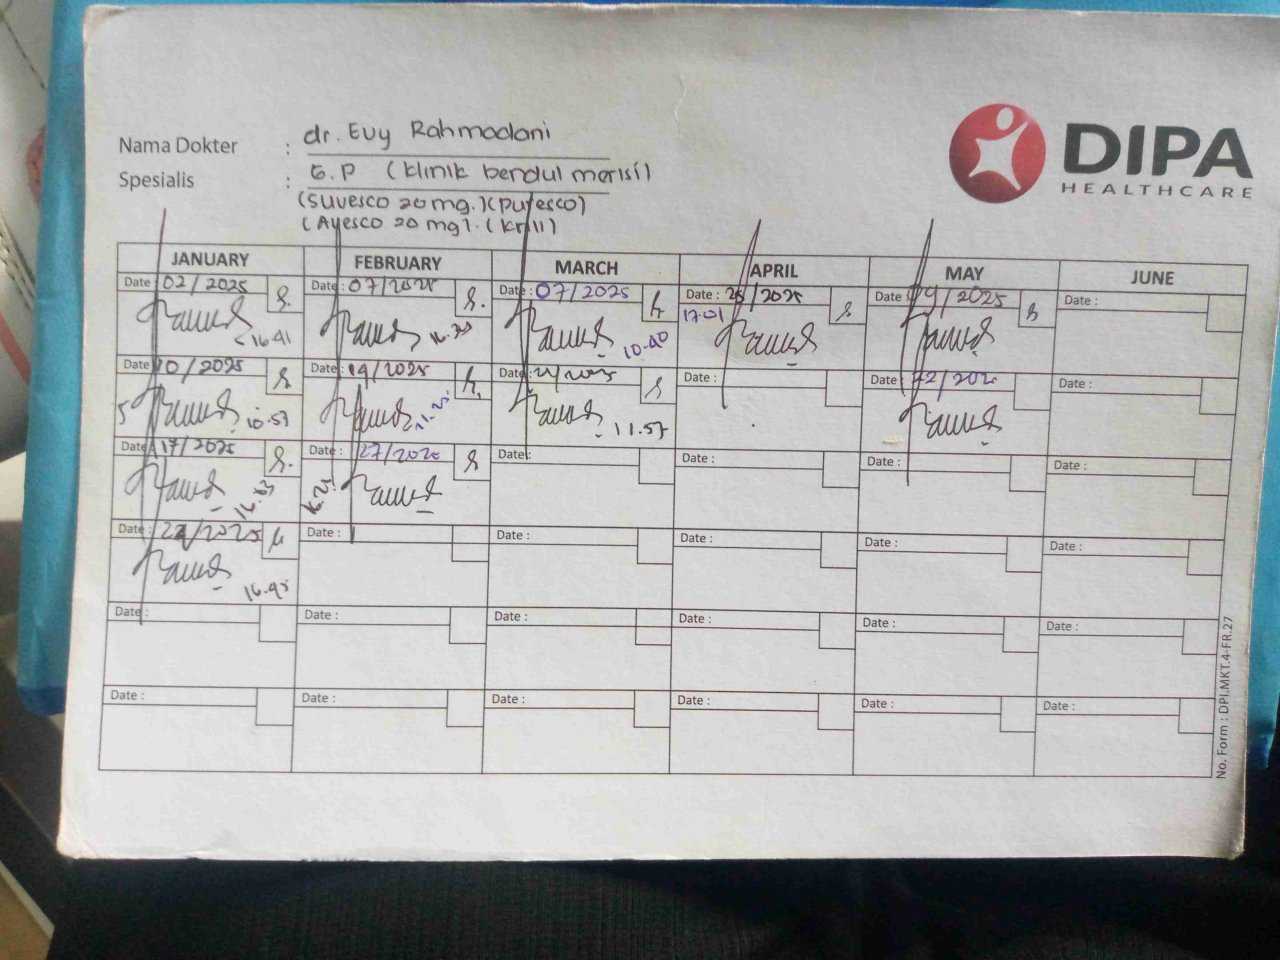 DIPA
HEALTHCARE
Nama Dokter : dr. Evy Rahmadani
Spesialis : G.P (klinik bendul merisi)
(Suvesco 20 mg.) (Puresco)
(Ayesco 20 mg). (Krill)
JANUARY FEBRUARY MARCH APRIL MAY JUNE
Date : 02/2025 S. Date : 07/2025 S. Date : 07/2025 Date : 25/2025 S Date : /2025 S Date :
16.41 16.33 10.40 17.01
Date : 10/2025 S Date : 19/2025 Date : 21/2025 S Date : Date : Date :
10.57 11.57
Date : 17/2025 S. Date : 27/2025 S Date : Date : Date : Date :
16.25
Date : /2025 Date : Date : Date : Date : Date :
16.45
Date : Date : Date : Date : Date : Date :
Date : Date : Date : Date : Date : Date :
No. Form : DPI.MKT.4-FR.27